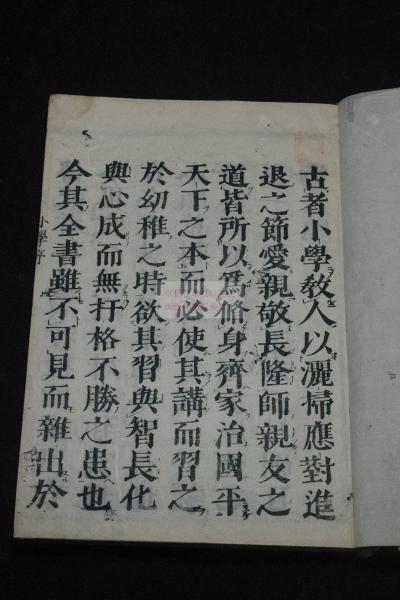 古者小學敎人以灑掃應對進
退之節愛親敬長隆師親友之
道皆所以爲脩身齊家治國平
天下之本而必使其講而習之
於幼稚之時欲其習與智長化
與心成而無扞格不勝之患也
今其全書雖不可見而雜出於
小學序